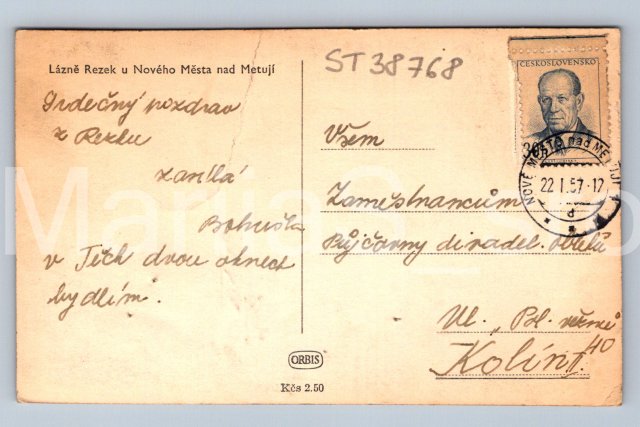 Lázně Rezek u Nového Města nad Metují
ST 38768
Srdečný pozdrav
z Rezku
zasílá
Bohuška
v Těch dvou oknech
bydlím.
Všem
Zaměstnancům
Půjčovny divadel. obleků
Ul. „Pol. vězňů
40
Kolín I.
ČESKOSLOVENSKO
NOVÉ MĚSTO nad METUJÍ
22.I.57-12
d
ORBIS
Kčs 2.50